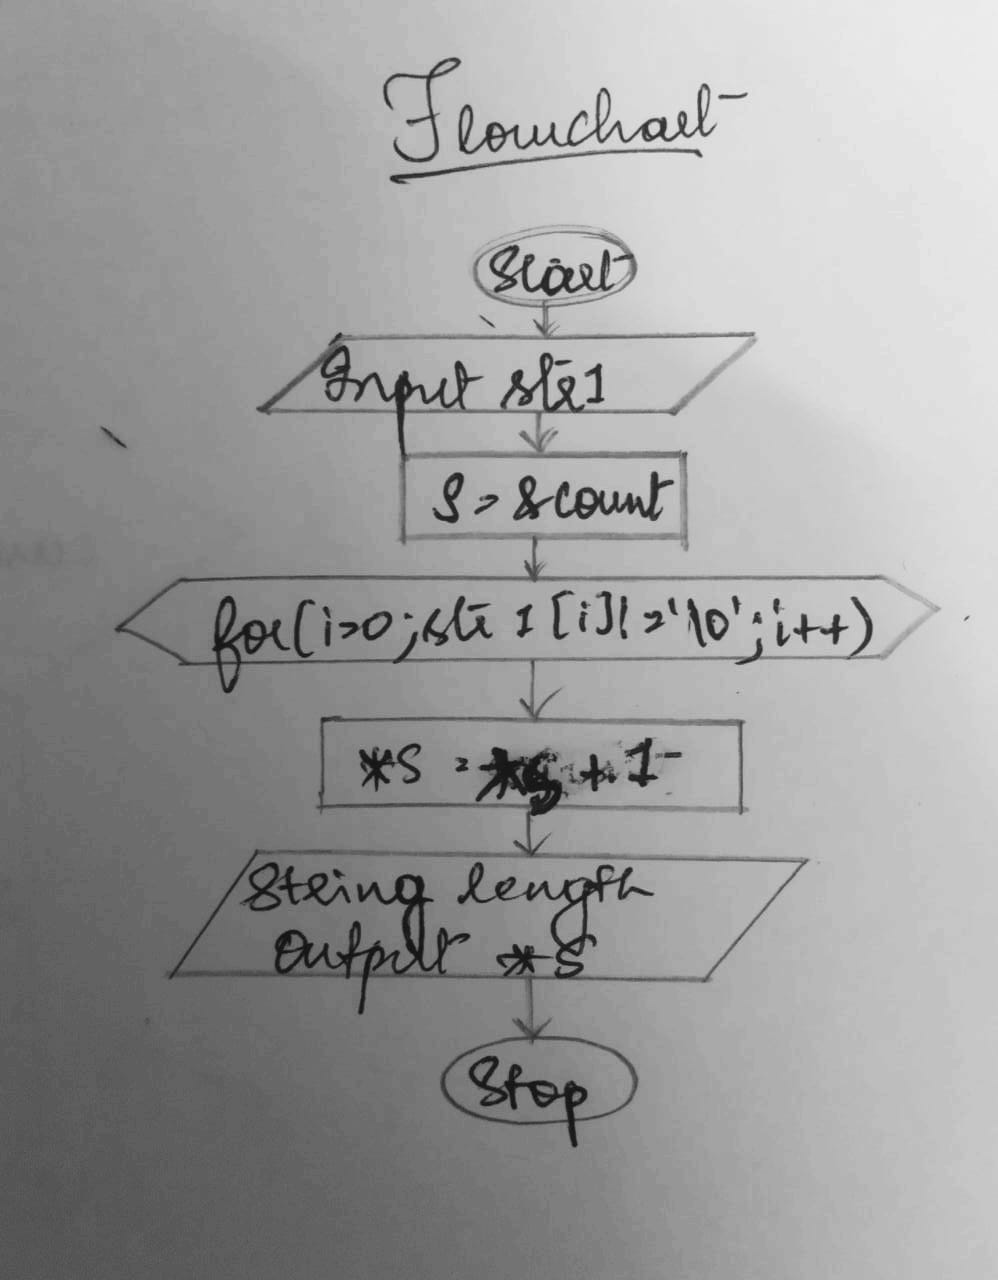 Flowchart
Start
Input str1
S = &count
for(i=0;str1[i]!='\0';i++)
*S = *S + 1
String length
Output *S
Stop